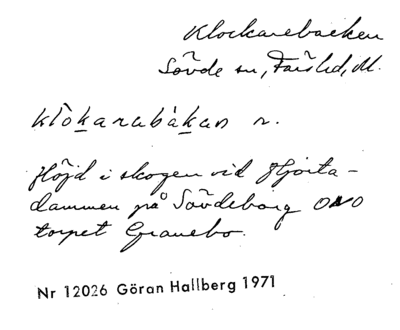 Klockarebacken
Sövde sn, Färs hd, M.
klòkarabàkan n.
Höjd i skogen vid Hjorta-
dammen på Sövdeborg ONO
torpet Granebo.
Nr 12026 Göran Hallberg 1971